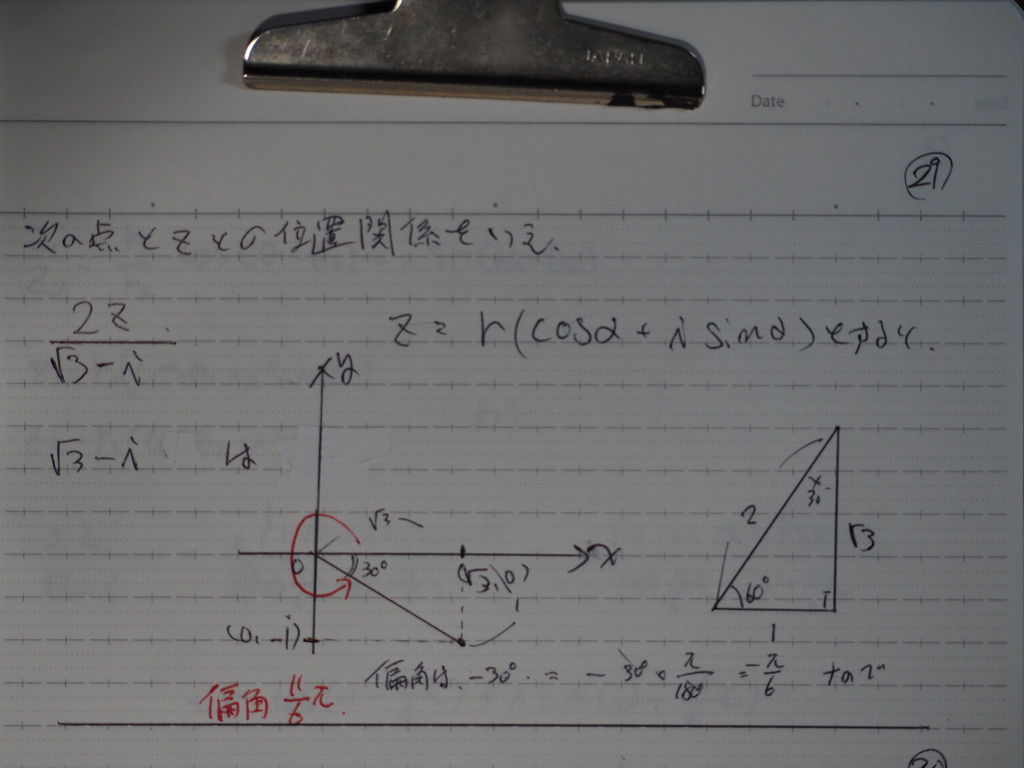 JAPAN
Date
29
次の点とzとの位置関係をいえ.
2z/(√3-i)
z = r(cosα + i sinα)とおくと.
√3-i は
y
√3
x
0
30°
(√3, 0)
1
(0, -i)
2
30
√3
60°
1
偏角は -30° = -30° · π/180° = -π/6
偏角 11/6 π.